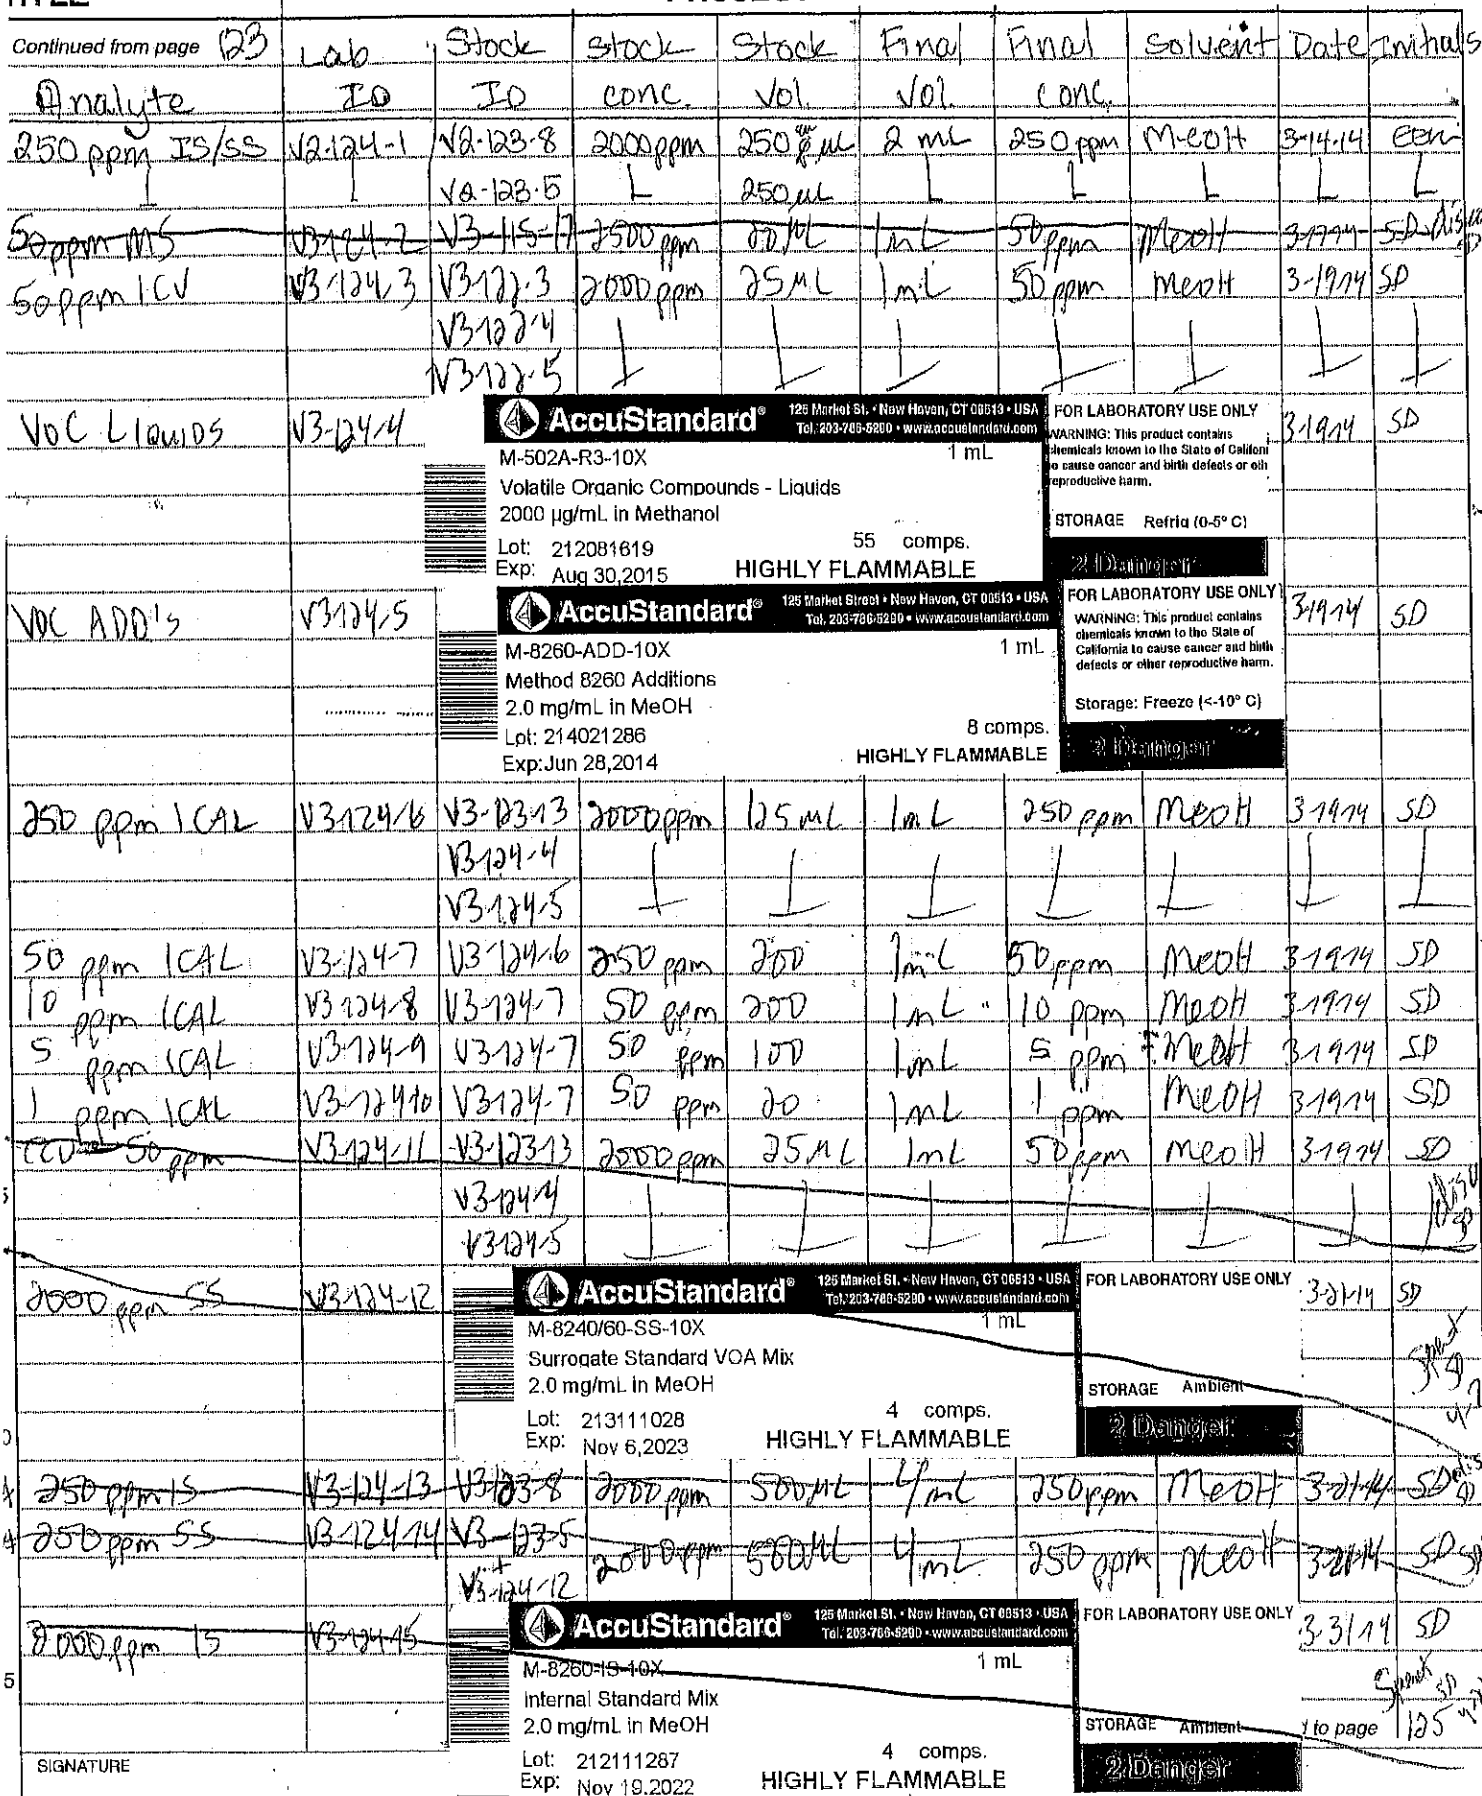 Continued from page 123 Lab Stock Stock Stock Final Final Solvent Date Initials
Analyte ID ID conc. Vol. Vol. conc.
250 ppm IS/SS V2-124-1 V2-123-8 2000ppm 250 µL 2 mL 250 ppm MeOH 3-14-14
V2-123-5 250 µL
50 ppm MS V3-124-2 V3-115-17 2500 ppm 20 µL 1 mL 50 ppm MeOH SD
50 ppm ICV V3-124-3 V3-122-3 2000 ppm 25 µL 1 mL 50 ppm MeOH 3-19-14 SD
V3-122-4
V3-122-5
VOC LIQUIDS V3-124-4 3-19-14 SD
AccuStandard® 125 Market St. • New Haven, CT 06513 • USA
Tel. 203-786-5290 • www.accustandard.com
M-502A-R3-10X 1 mL
Volatile Organic Compounds - Liquids
2000 µg/mL in Methanol
Lot: 212081619 55 comps.
Exp: Aug 30,2015 HIGHLY FLAMMABLE
FOR LABORATORY USE ONLY
WARNING: This product contains
chemicals known to the State of Californi
o cause cancer and birth defects or oth
eproductive harm.
STORAGE Refrig (0-5° C)
2 Danger
VOC ADD's V3-124-5 3-19-14 SD
AccuStandard® 125 Market Street • New Haven, CT 06513 • USA
Tel. 203-786-5290 • www.accustandard.com
M-8260-ADD-10X 1 mL
Method 8260 Additions
2.0 mg/mL in MeOH
Lot: 214021286 8 comps.
Exp:Jun 28,2014 HIGHLY FLAMMABLE
FOR LABORATORY USE ONLY
WARNING: This product contains
chemicals known to the State of
California to cause cancer and birth
defects or other reproductive harm.
Storage: Freeze (<-10° C)
2 Danger
250 ppm ICAL V3-124-6 V3-123-13 2000ppm 125 µL 1 mL 250 ppm MeOH 3-19-14 SD
V3-124-4
V3-124-5
50 ppm ICAL V3-124-7 V3-124-6 250 ppm 200 1 mL 50 ppm MeOH 3-19-14 SD
10 ppm ICAL V3-124-8 V3-124-7 50 ppm 200 1 mL 10 ppm MeOH 3-19-14 SD
5 ppm ICAL V3-124-9 V3-124-7 50 ppm 100 1 mL 5 ppm MeOH 3-19-14 SD
1 ppm ICAL V3-124-10 V3-124-7 50 ppm 20 1 mL 1 ppm MeOH 3-19-14 SD
CCV 50 ppm V3-124-11 V3-123-13 2000 ppm 25 µL 1 mL 50 ppm MeOH 3-19-14 SD
V3-124-4
V3-124-5
2000 ppm SS V3-124-12 3-21-14 SD
AccuStandard® 125 Market St. • New Haven, CT 06513 • USA
Tel. 203-786-5290 • www.accustandard.com
M-8240/60-SS-10X 1 mL
Surrogate Standard VOA Mix
2.0 mg/mL in MeOH
Lot: 213111028 4 comps.
Exp: Nov 6,2023 HIGHLY FLAMMABLE
FOR LABORATORY USE ONLY
STORAGE Ambient
2 Danger
Spent
250 ppm IS V3-124-13 V3-123-8 2000 ppm 500 µL 4 mL 250 ppm MeOH 3-21-14 SD
250 ppm SS V3-124-14 V3-123-5 2000 ppm 500 µL 4 mL 250 ppm MeOH 3-21-14 SD
+
V3-124-12
2000 ppm IS V3-124-15 3-31-14 SD
AccuStandard® 125 Market St. • New Haven, CT 06513 • USA
Tel. 203-786-5290 • www.accustandard.com
M-8260-IS-10X 1 mL
Internal Standard Mix
2.0 mg/mL in MeOH
Lot: 212111287 4 comps.
Exp: Nov 19,2022 HIGHLY FLAMMABLE
FOR LABORATORY USE ONLY
STORAGE Ambient
2 Danger
Spent SD
to page 125
SIGNATURE